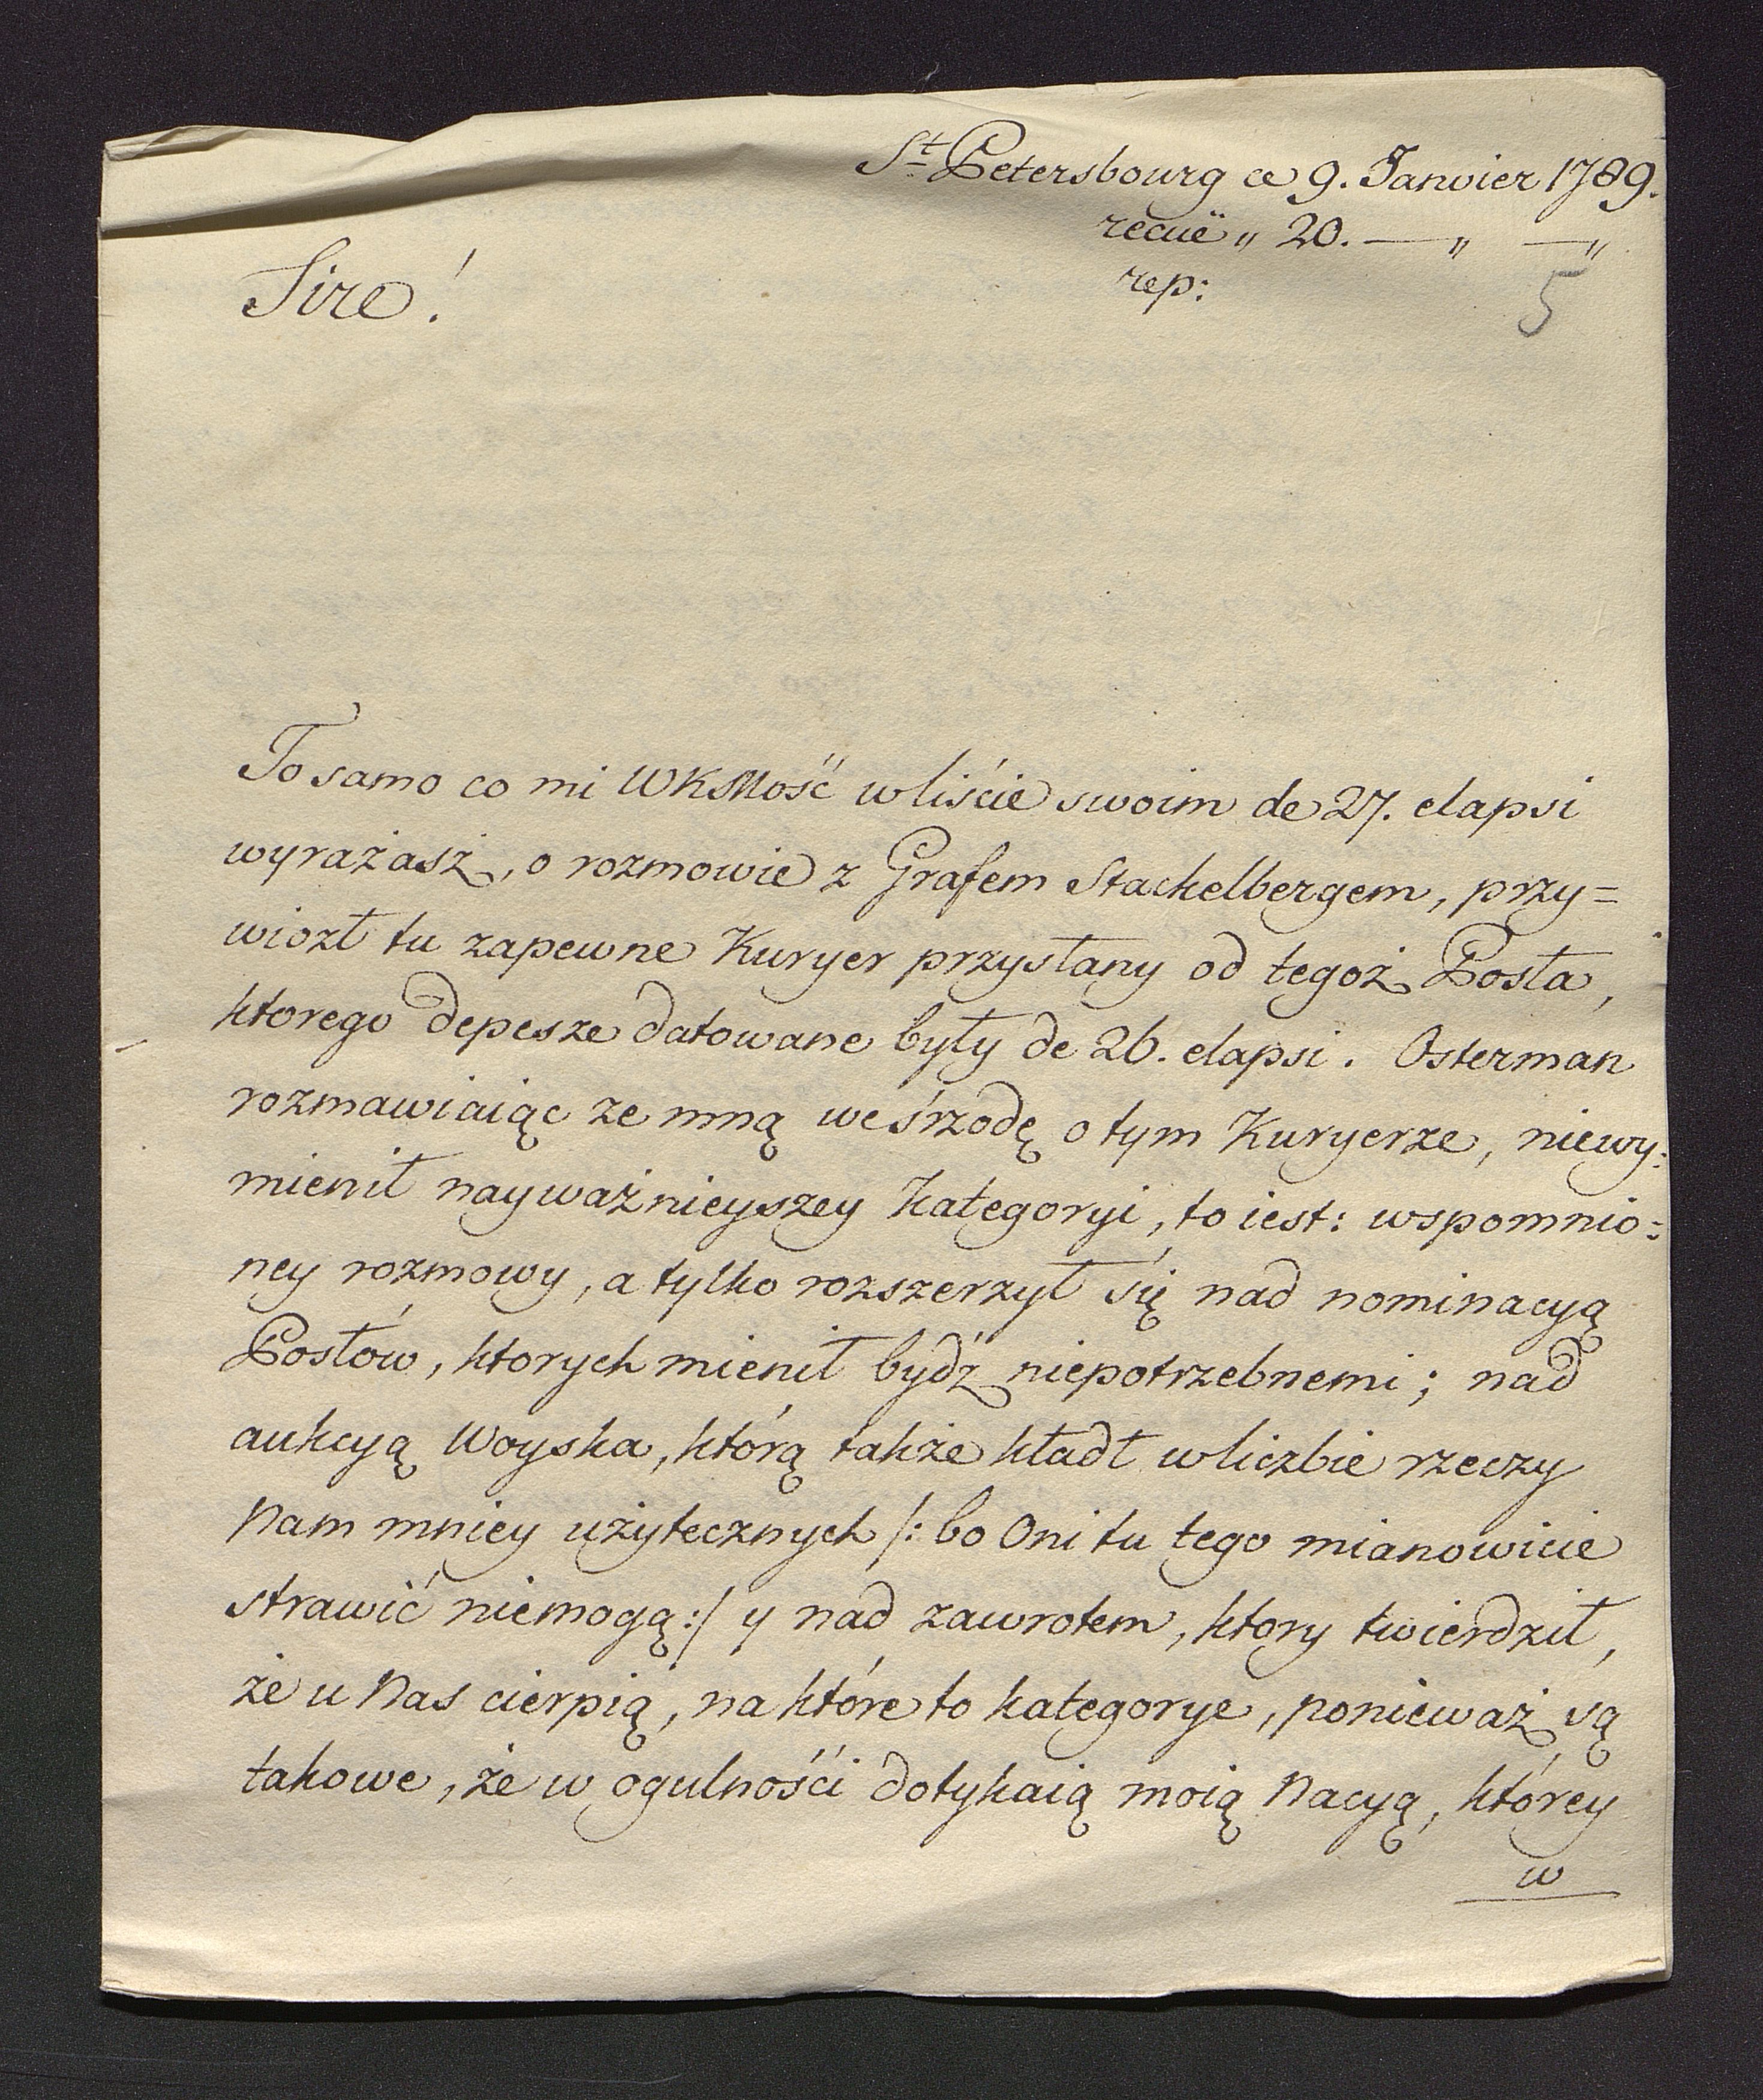 St. Petersbourg ce 9. Janvier 1789.
recüe " 20. — " — "
rep:
5
Sire!
To samo co mi WKMość w liście swoim de 27. elapsi
wyrażasz, o rozmowie z Grafem Stackelbergem, przy=
wiozł tu zapewne Kuryer przysłany od tegoż Posła,
ktorego depesze datowane były de 26. elapsi. Osterman
rozmawiaiąc ze mną we śrzodę o tym Kuryerze, niewy:
mienił nayważnieyszey kategoryi, to iest: wspomnio=
ney rozmowy, a tylko rozszerzył się nad nominacyą
Posłów, ktorych mienił bydź niepotrzebnemi; nad
aukcyą Woyska, którą także kładł w liczbie rzeczy
Nam mniey użytecznych /: bo Oni tu tego mianowicie
strawić niemogą :/ y nad zawrotem, ktory twierdził,
że u Nas cierpią, na które to kategorye, ponieważ są
takowe, że w ogulnośći dotykaią moią Nacyą, którey
w